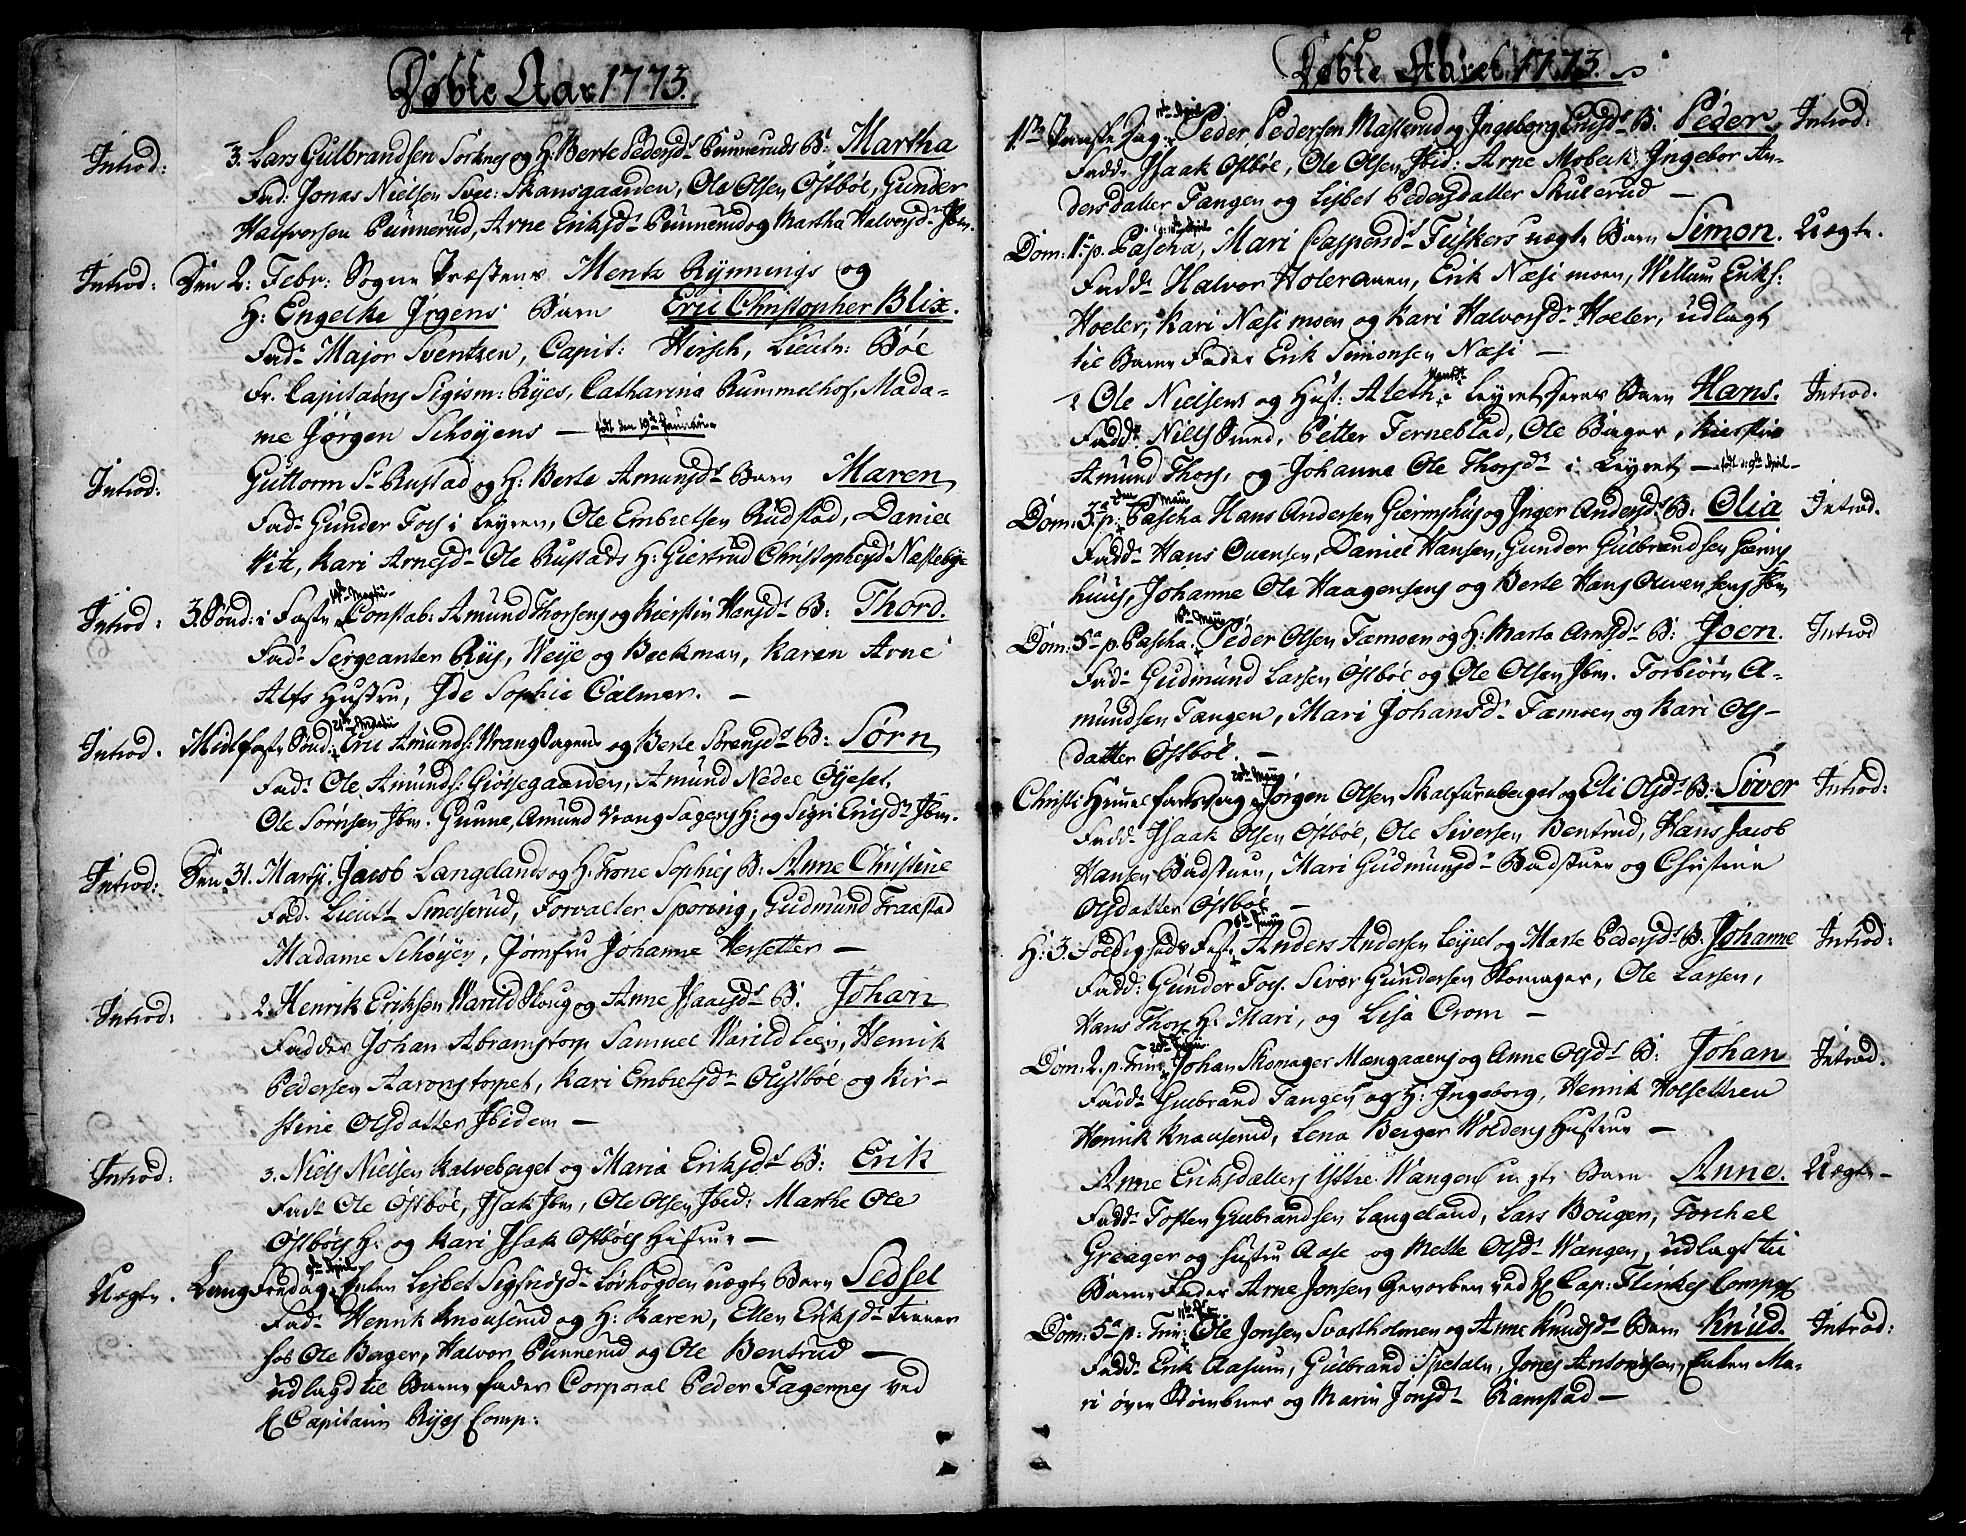 Døbte Aar 1773.
Introd: 3. Lars Gulbrandsen Sorknes og H: Berte Pedersd: Punneruds B: Martha
Fad: Jonas Nielsen Svee: Skansgaarden, Ole Olsen Ostböe, Gunder
Halfvorsen Punnerud, Arne Eriksd: Punnerud og Martha Halvorsd: Ibm.
Introd: Den 2: Febr: Sogne Præstens Mentz Rynnings og
H: Engelke Jrgens Barn Eric Christopher Blix.
Fad: Major Sventzen, Capit: Hirsch, Lieutn: Böe
Fr. Capitains Sigism: Ryes, Catharina Rummelhof, Mada-
me Jørgen Schøyens — født den 19de Januari.
Introd: Guttorm S: Rustad og H: Berte Amunsd: Barn Maren
Fad: Gunder Fos i Leyren, Ole Embretsen Rudstad, Daniel
Vitz, Kari Arnesd: Ole Rustads H: Giertrud Christophersd: Nastebye
Introd: 3. Sönd: i Faste 14de Martii Constab: Amund Thorsens og Kierstin Hansd: B: Thord.
Fad: Sergeanter Rus, Weije og Beckman, Karen Arne
Alfs Hustru, Ide Sophie Calmer. —
Introd. Midfaste Sönd: 21de Martii Eric Amunds: Vrangsagens og Berte Sørensd: B: Sørn
Fad: Ole Amunds: Giølsegaarden, Amund Nedre Øyeset,
Ole Sørnsen Ibm. Gunne, Amund Vrang Sagens H: og Sigri Ericsd: Ibm.
Introd: Den 31. Martij. Jacob Langelands og H: Trone Sophies B: Anne Christine
Fad: Lieutn: Smedserud, Forvalter Sporing, Gudmund Fraastad
Madame Schøyen, Jomfru Johanne Hersetter —
Introd: 2. Henrik Eriksen Warild Skoug og Anne Isaacsd: B: Johan
Fadder Johan Abramstorp Samuel Warild Lien, Henrik
Pedersen Aaronstorpet, Kari Embretsd: Oustböe og Kir-
stine Olsdatter Ibidem —
Introd: 3. Niels Nielsen Kalveberget og Maria Eriksd: B: Erik
Fad: Ole Ostböe, Isak Ibm, Ole Olsen Ibid: Marthe Ole
Ostböes H: og Kari Isak Ostböes Hustrue —
Uægte. Lang Fredag 9de April. Enken Lisbet Sigfridsd: Lövhögden uægte Barn Sidsel
Fad: Henrik Knauserud og H: Karen, Ellen Eriksd: tiener
hos Ole Berger, Halvor Punnerud og Ole Bentrud —
udlagd til Barne fader Corporal Peder Fagernes ved
H Capitain Ryes Comp:
4
Døbte Aaret 1773.
1ste Paaske Dag 11te April Peder Pedersen Masterud og Ingeborg Ericsd: B: Peder. Introd:
Fadd: Isaak Ostböe, Ole Olsen Ibid: Arne Mobeck, Ingebor An-
dersdatter Tangen og Lisbet Pedersdatter Skulerud —
Dom: 1. p. Pascha, 18de April Mari Caspersd: Fuskers uægte Barn Simon. Uægte.
Fadd: Halvor Holeraaen, Erik Næsimoen, Willum Eriks:
Hoeler, Kari Næsimoen og Kari Halvorsd: Hoeler, udlagt
til Barne Fader Erik Simonsen Næsi —
Ole Nielsens og Hust: Aleth: Hansd: Leyret deres Barn Hans. Introd.
Fadd: Niels Smed, Petter Terneblad, Ole Bager, Kierstin
Amund Thors, og Johanne Ole Thorsd: i Leyret — født d: 9de April —
Dom: 3. p. Pascha 2den Maii Hans Andersen Giermshus og Inger Andersd: B: Olia Introd.
Fadd: Hans Ouensen, Daniel Hansen, Gunder Gulbrandsen Gierms
huus, Johanne Ole Haagensens og Berte Hans Ouensens Ibm
Dom: 5ta p. Pascha. 16de Maii Peder Olsen Tæmoen og H: Marta Arnesd: B: Joen. Introd
Fad: Gudmund Larsen Ostböe og Ole Olsen Ibm. Torbiörn A-
mundsen Tangen, Mari Johansd: Tæmoen og Kari Ols-
datter Ostböe. —
Christi Himmelfartsdag 20de Maii Jörgen Olsen Skalfuruberget og Eli Olsd: B: Siver Introd:
Fadd: Isaak Olsen Ostböe, Ole Siversen Bentrud, Hans Jacob
Hansen Badstuen, Mari Gudmunsd: Badstuen og Christine
Olsdatter Ostböe —
H: 3. Foldigheds Fest 6te Junii Anders Andersen Leyret og Marte Pedersd: B: Johanne Introd:
Fadd: Gunder Fos. Siver Gundersen Skomager, Ole Larsen,
Hans Thors H: Mari, og Lisa Crom —
Dom: 2. p. Trin: 20de Junii. Johan Skomager Mængaaens og Anne Olsd: B: Johan Introd.
Fadd: Gulbrand Tangen og H: Ingeborg, Henrik Holsettren
Henrik Knauserud, Lena Berger Woldens Hustrue —
Anne Eriksdatters Ystre Wangen uægte Barn Anne. Uægte —
Fadd: Tosten Gulbrandsen Langeland, Lars Bougen, Torchel
Greager og Hustru Aase og Mette Olsd: Wangen, udlagt til
Barne Fader Arne Jonsen Gevorben ved H Cap: Flinkes Comp:
Dom: 5ta p: Trin: Ole Jonsen Svartholmen og Anne Knudsd: Barn Knud. Introd:
Fadd: Erik Aasum, Gulbrand Spetalen, Jones Antonisen, Enken Ma-
ri øvre Stömbner og Marin Jonsd: Ramstad —